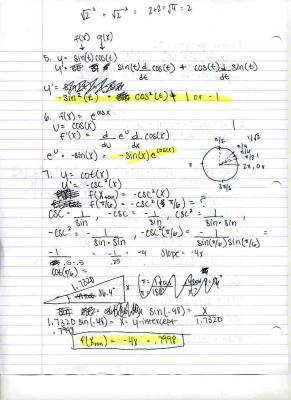 √2² + √2² = 2+2=√4 = 2
f(x) g(x)
5. y = sin(t) cos(t)
y' = sin(t) d/dt cos(t) + cos(t) d/dt sin(t)
y' =
-sin²(t) + cos²(t) 1 or -1
6. f(x) = e^cos x
U = cos(x)
f'(x) = d/du e^u d/dx cos(x)
e^u · -sin(x) = -sin(x)e^cos(x)
π/2
π
3π/2
7. y = cot(x)
y' = -csc²(x)
f(x) = -csc²(x)
f(π/6) = -csc²(π/6) = ?
csc = 1/sin, -csc = -1/sin, csc² = 1/sin·sin
-csc² = -1/sin·sin, -csc²(π/6) = -1/sin(π/6)sin(π/6) =
-1/.5·.5 = -1/.25 = -4 slope = -4x
cot(π/6) =
1.7320
x
sin(-48) = x/1.7320
1.7320 sin(-48) = x = y-intercept
.7998
= -4x = .7998